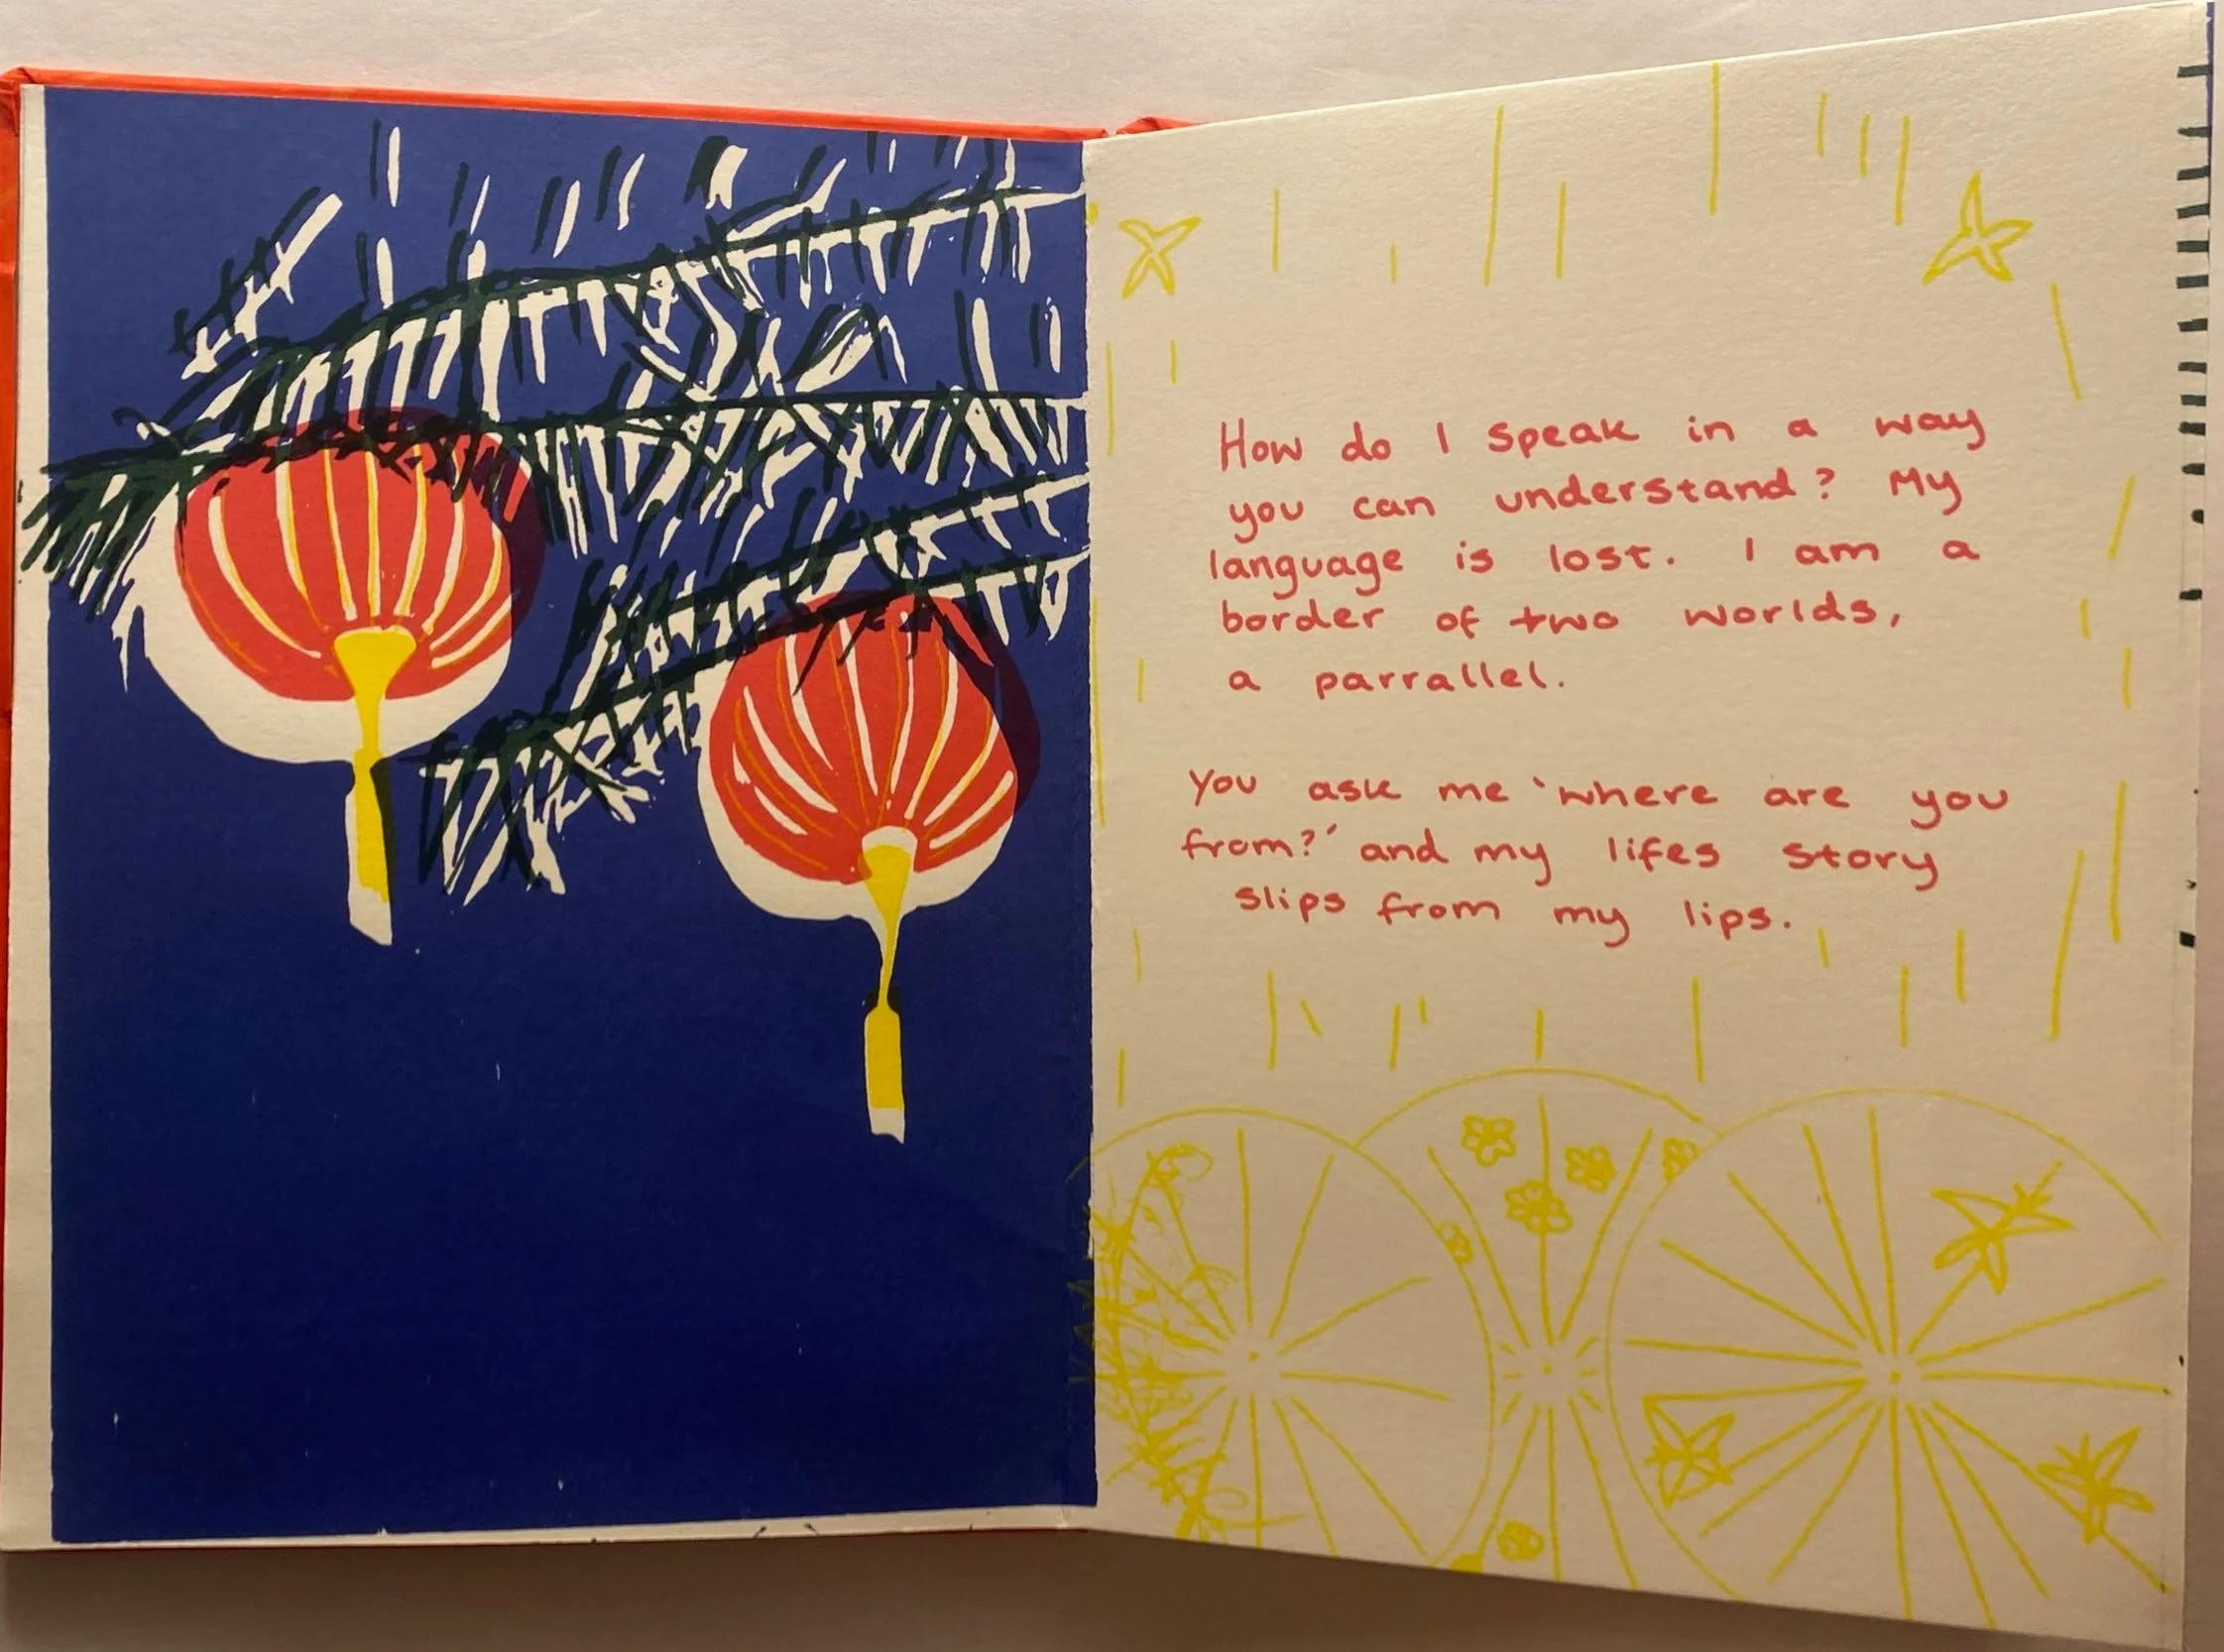 How do I speak in a way
you can understand? My
language is lost. I am a
border of two worlds,
a parrallel.
You ask me 'where are you
from?' and my lifes story
slips from my lips.